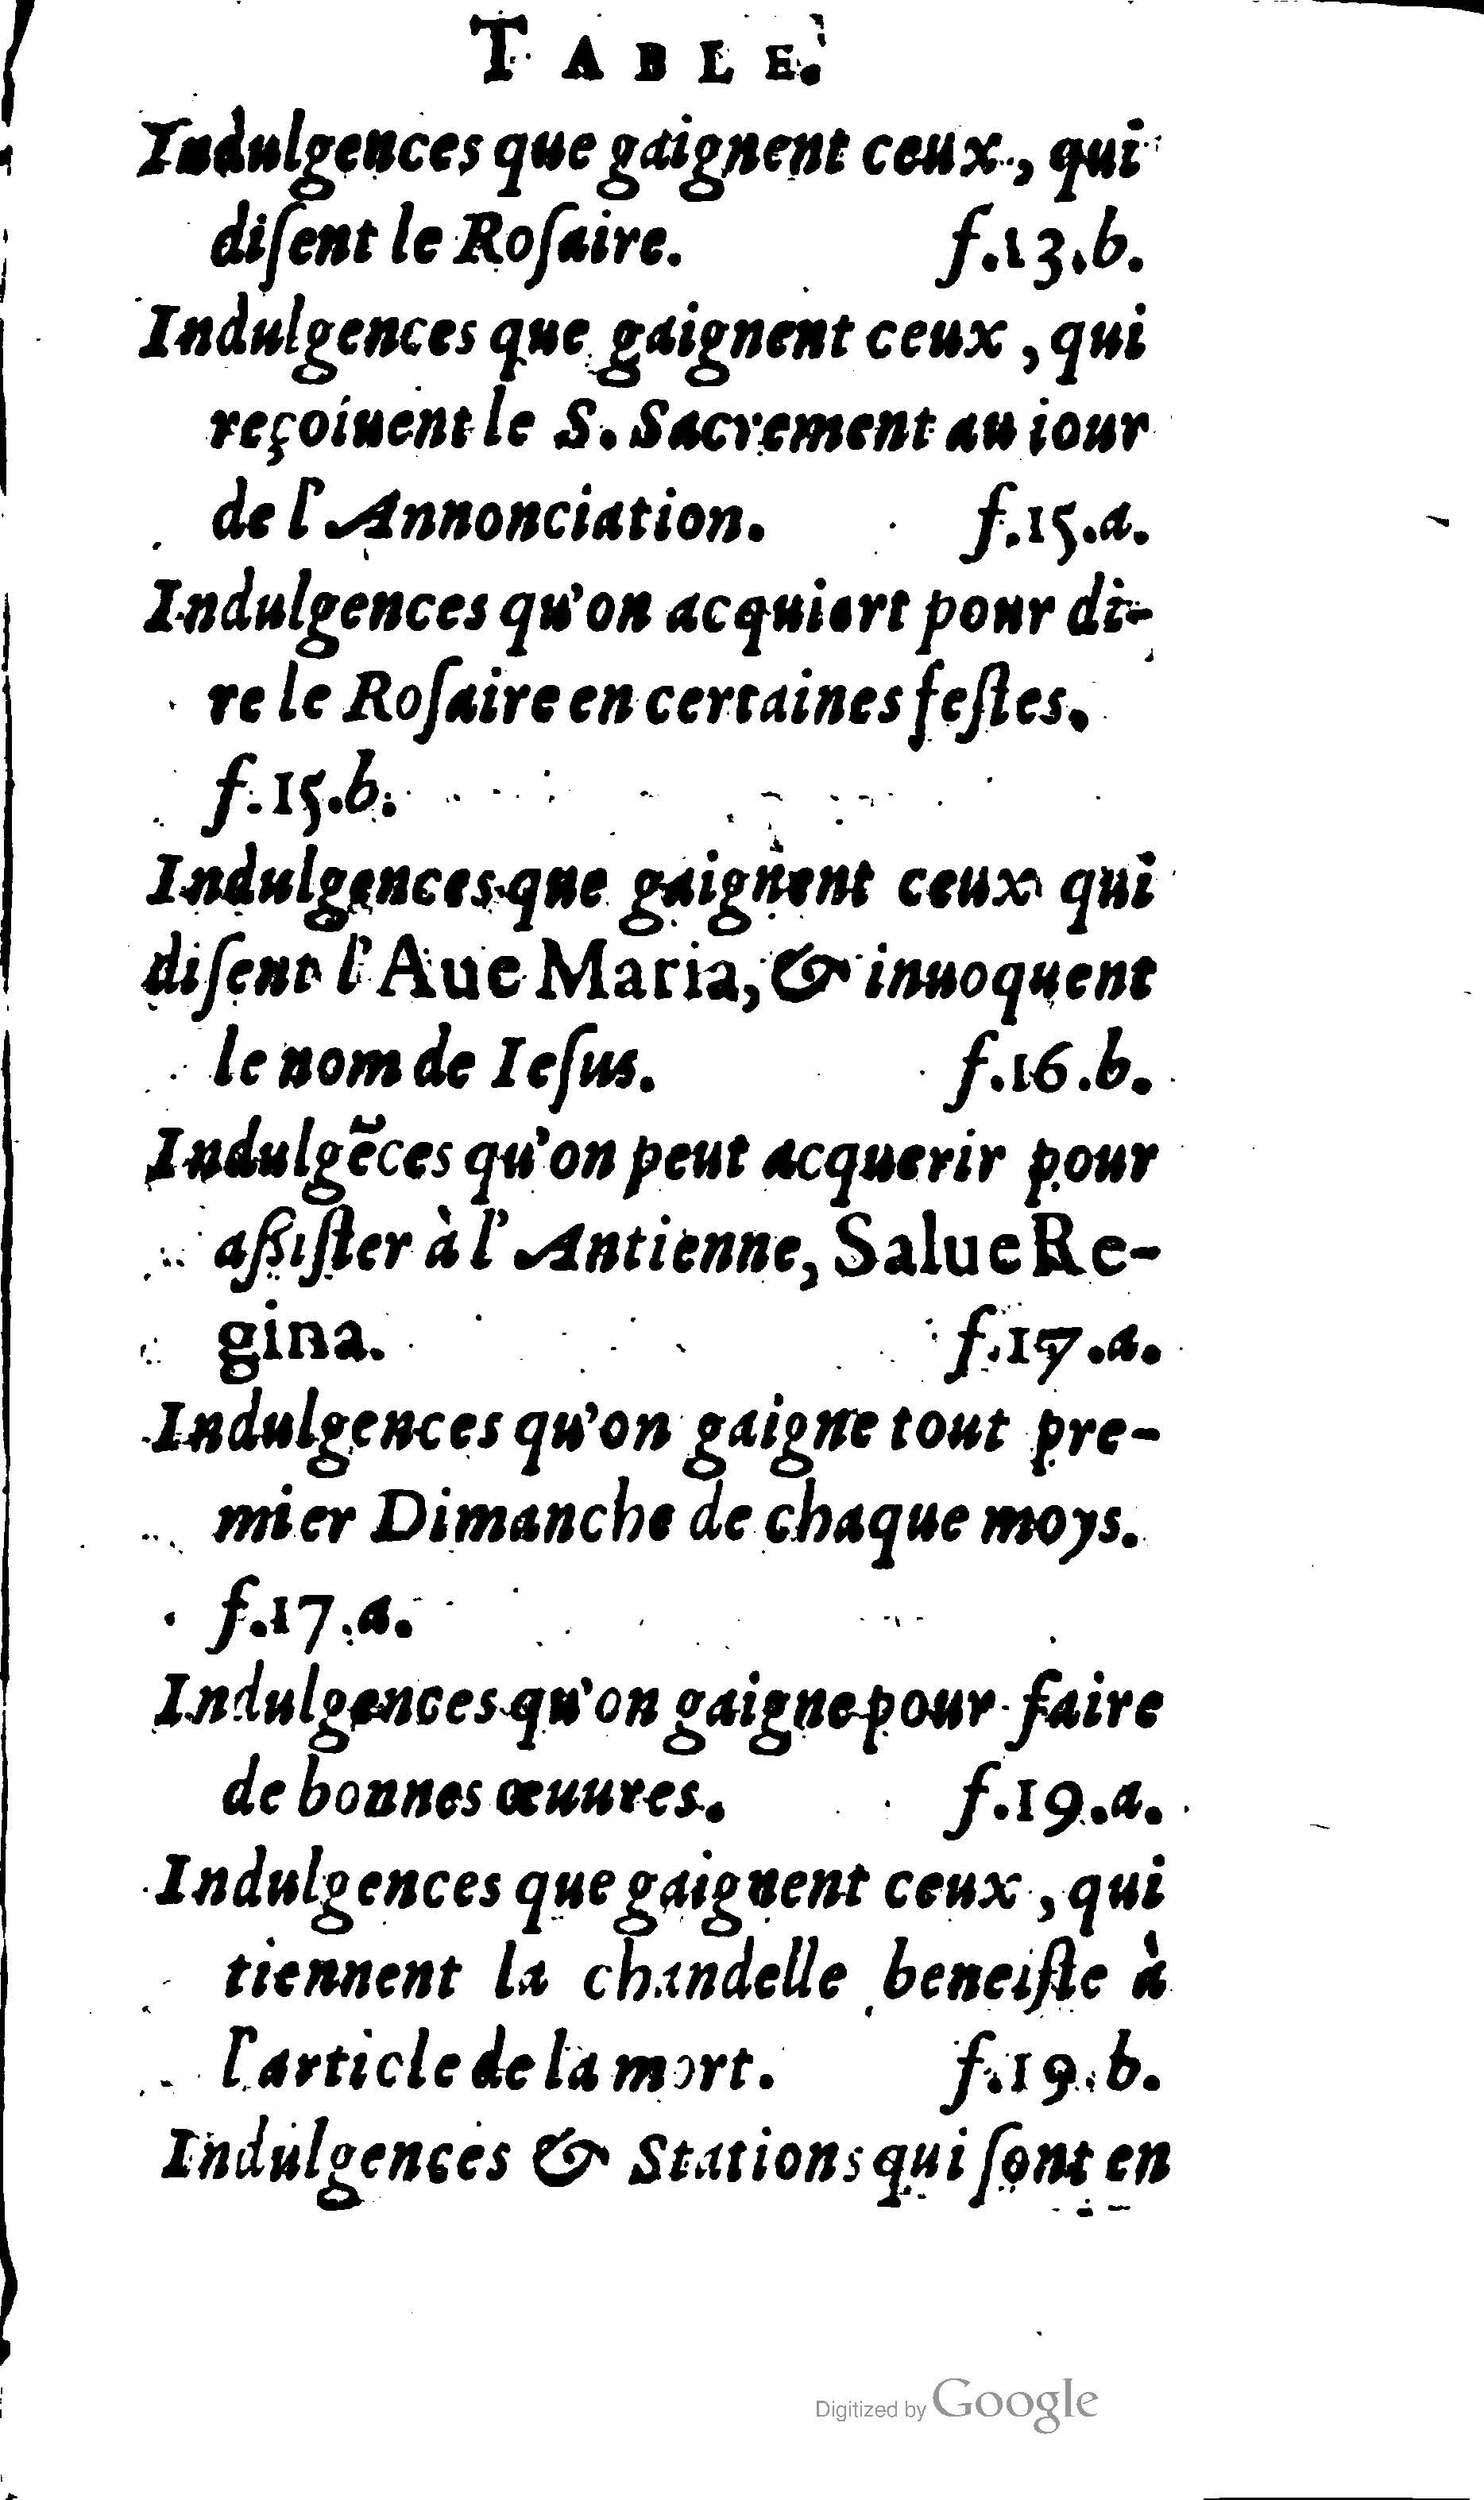 TABLE.
Indulgences que gaignent ceux, qui
diſent le Roſaire. f.13.b.
Indulgences que gaignent ceux, qui
reçoiuent le S. Sacrement au iour
de l'Annonciation. f.15.a.
Indulgences qu'on acquiert pour di-
re le Roſaire en certaines feſtes.
f.15.b.
Indulgences que gaignent ceux qui
diſent l'Aue Maria, & inuoquent
le nom de Ieſus. f.16.b.
Indulgẽces qu'on peut acquerir pour
aſſiſter à l'Antienne, Salue Re-
gina. f.17.a.
Indulgences qu'on gaigne tout pre-
mier Dimanche de chaque moys.
f.17.a.
Indulgences qu'on gaigne pour faire
de bonnes œuures. f.19.a.
Indulgences que gaignent ceux, qui
tiennent la chandelle beneiſte à
l'article de la mort. f.19.b.
Indulgences & Stations qui ſont en
Digitized by Google